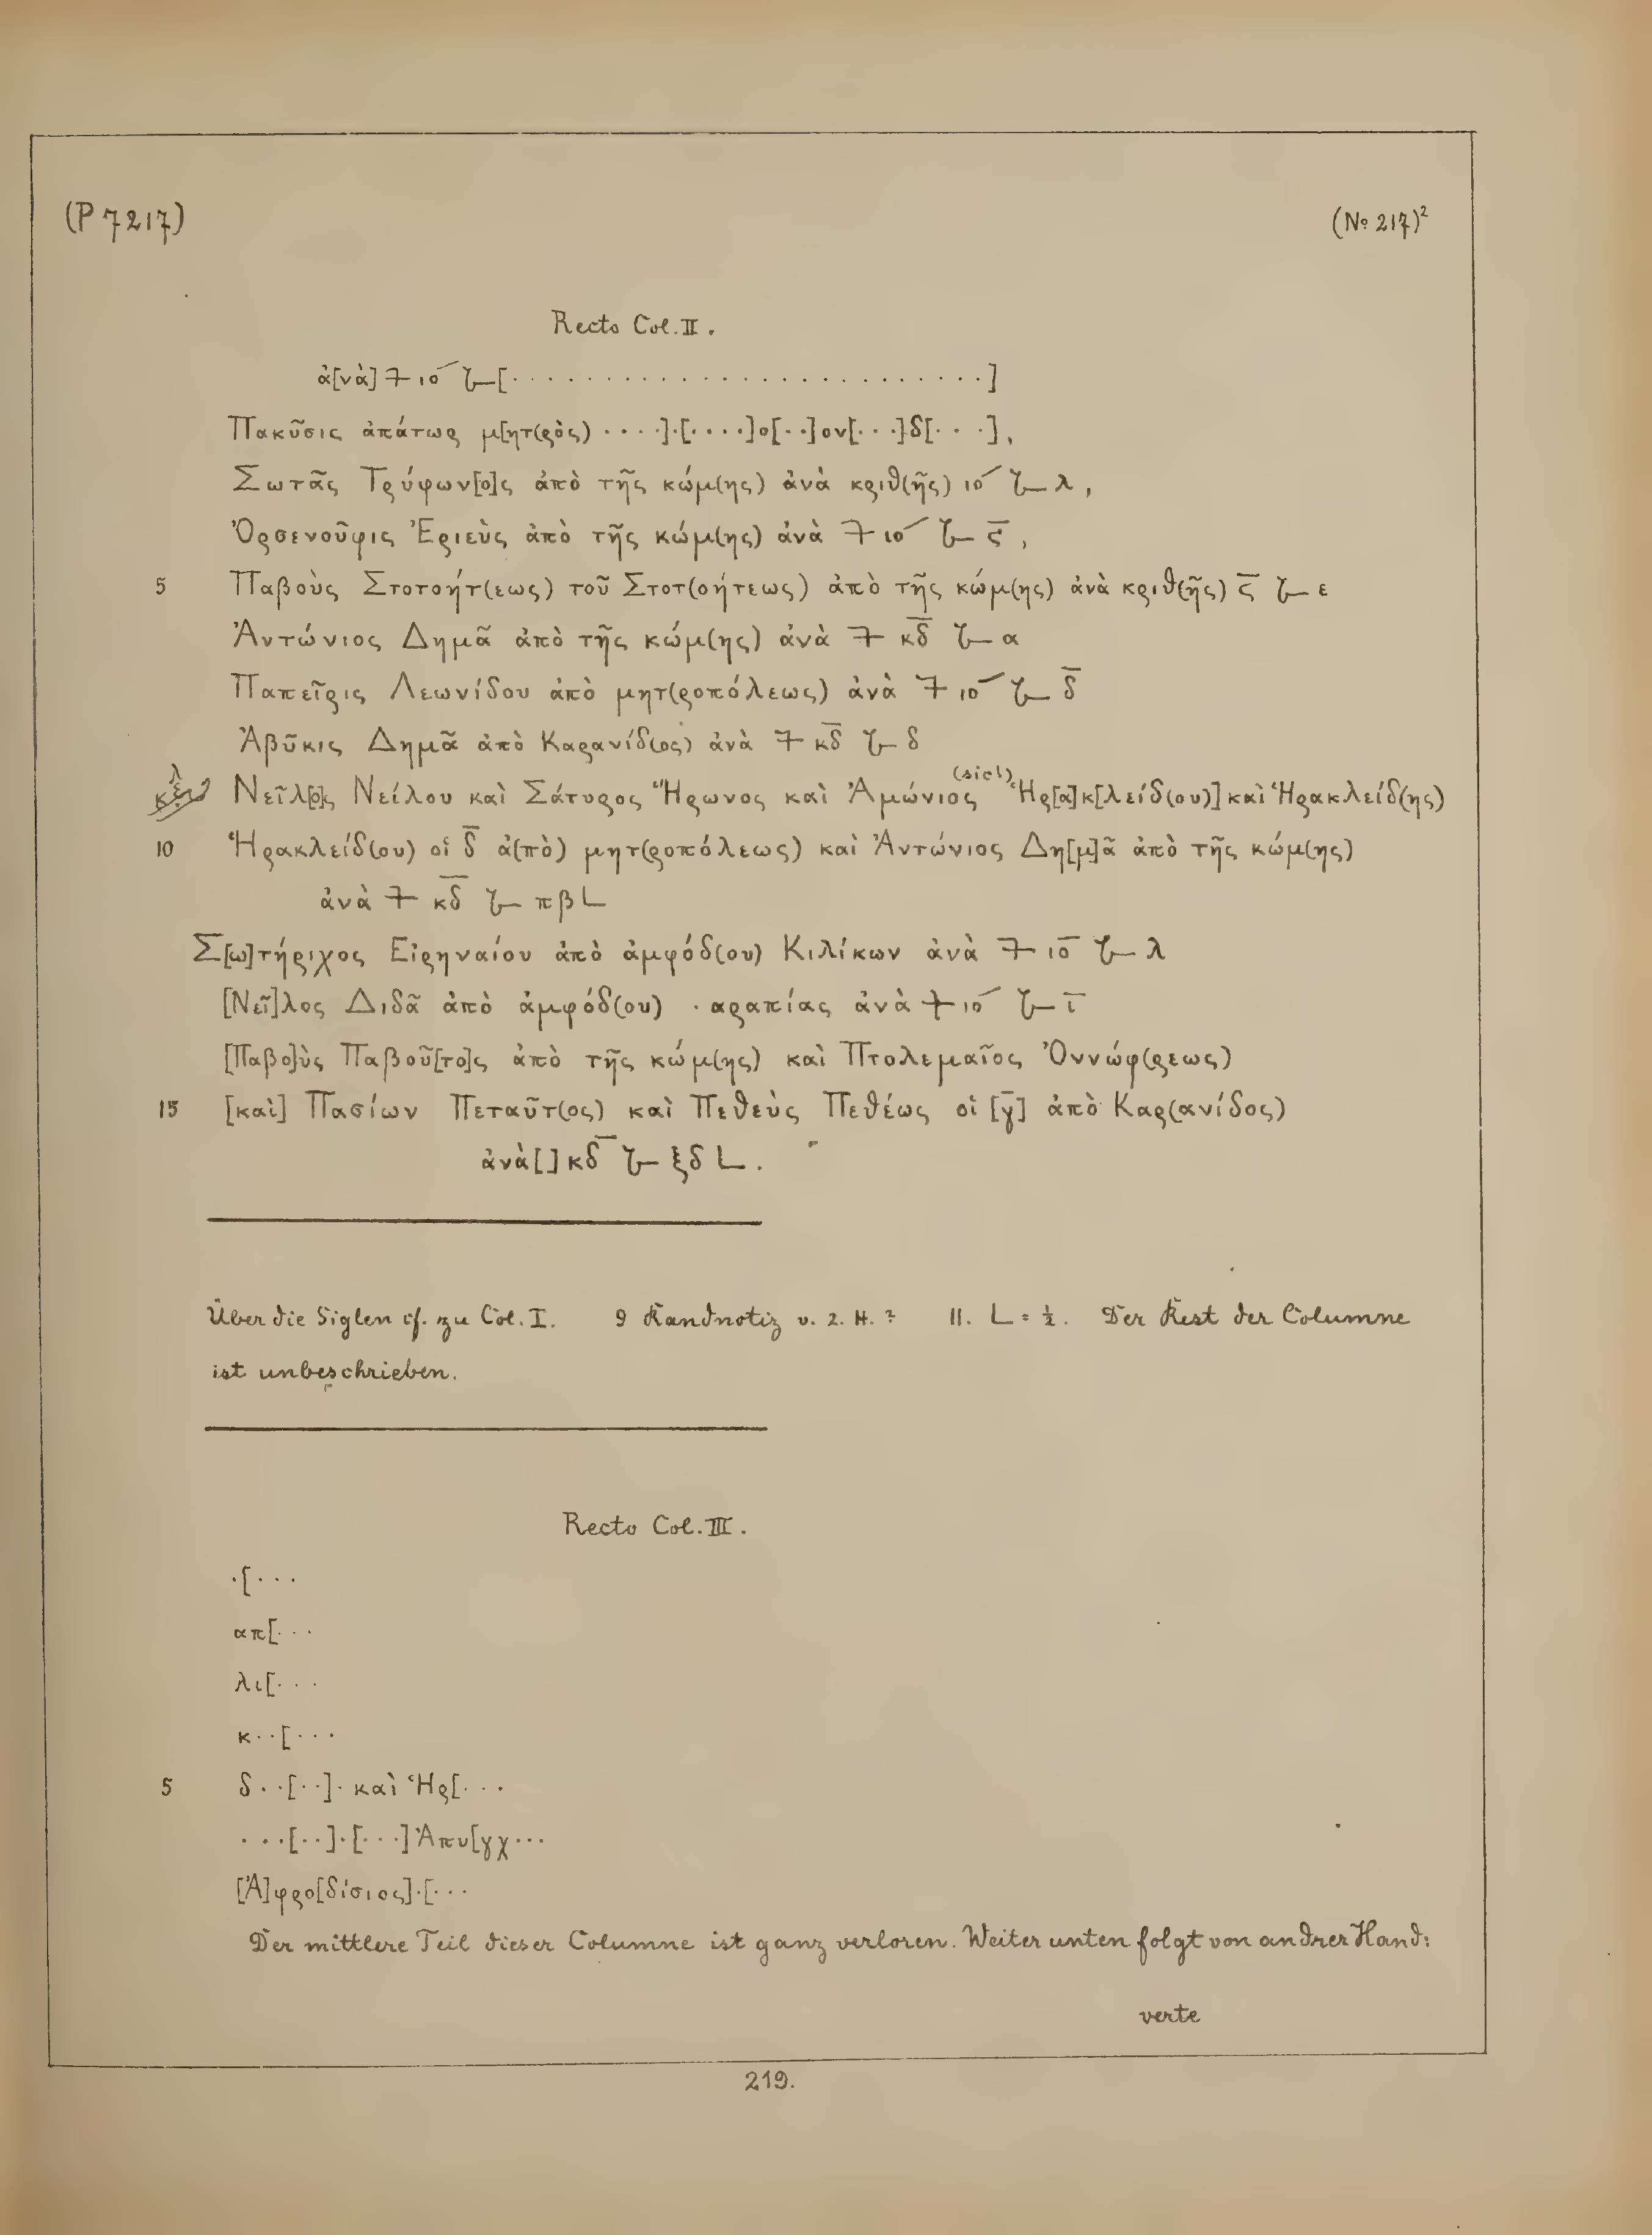 (P 7217)
(No 217)²
Recto Col. II.
ἀ[νὰ] 𐅾 ιο´ 𐅵[· · · · · · · · · · · · · · · · · · · · · · · · ·]
Πακῦσις ἀπάτωρ μ[ητ(ρὸς) · · · ·]·[· · · ·]ο[· ·]ον[· · ·]δ[· · ·],
Σωτᾶς Τρύφων[ο]ς ἀπὸ τῆς κώμ(ης) ἀνὰ κριθ(ῆς) ιο´ λ,
Ὀρσενοῦφις Ἑριεὺς ἀπὸ τῆς κώμ(ης) ἀνὰ ιο´ ς̅,
5 Παβοὺς Στοτοήτ(εως) τοῦ Στοτ(οήτεως) ἀπὸ τῆς κώμ(ης) ἀνὰ κριθ(ῆς) ς̅ ε
Ἀντώνιος Δημᾶ ἀπὸ τῆς κώμ(ης) ἀνὰ κδ̅ α
Παπεῖρις Λεωνίδου ἀπὸ μητ(ροπόλεως) ἀνὰ ιο´ δ̅
Ἀβῦκις Δημᾶ ἀπὸ Καρανίδ(ος) ἀνὰ κδ̅ δ
Νεῖλ[ο]ς Νείλου καὶ Σάτυρος Ἥρωνος καὶ Ἀμώνιος (sic!) Ἡρ[α]κ[λείδ(ου)] καὶ Ἡρακλείδ(ης)
10 Ἡρακλείδ(ου) οἱ δ̅ ἀ(πὸ) μητ(ροπόλεως) καὶ Ἀντώνιος Δη[μ]ᾶ ἀπὸ τῆς κώμ(ης)
ἀνὰ κδ̅ πβ L
Σ[ω]τήριχος Εἰρηναίου ἀπὸ ἀμφόδ(ου) Κιλίκων ἀνὰ ιο̅ λ
[Νεῖ]λος Διδᾶ ἀπὸ ἀμφόδ(ου) ·αραπίας ἀνὰ ιο´ ι̅
[Παβο]ὺς Παβοῦ[το]ς ἀπὸ τῆς κώμ(ης) καὶ Πτολεμαῖος Ὀννώφ(ρεως)
15 [καὶ] Πασίων Πεταῦτ(ος) καὶ Πεθεὺς Πεθέως οἱ [γ̅] ἀπὸ Καρ(ανίδος)
ἀνὰ [ ] κδ̅ ξδ L.
Über die Siglen cf. zu Col. I. 9 Randnotiz v. 2. H.? 11. L = ½. Der Rest der Columne
ist unbeschrieben.
Recto Col. III.
·[· · ·
απ[· · ·
λι[· · ·
κ··[· · ·
5 δ··[··]· καὶ Ἡρ[· · ·
···[··]·[···] Ἀπυ[γχ···
[Ἀ]φρο[δίσιος]·[· · ·
Der mittlere Teil dieser Columne ist ganz verloren. Weiter unten folgt von andrer Hand:
verte
219.